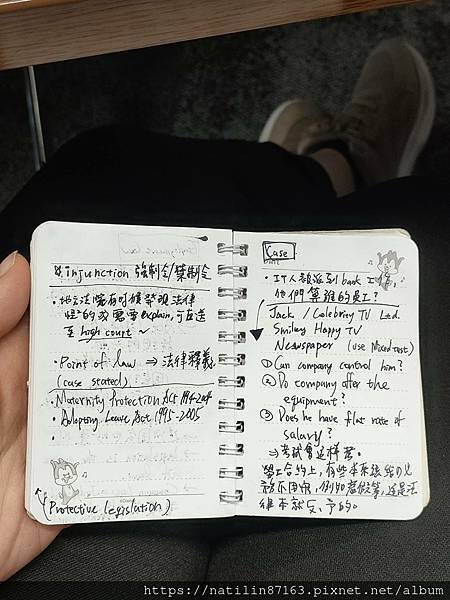 ※ injunction 強制令/禁制令
・地方法院有時候發現法律
怪怪的或需要explain,可直送
至 high court ~
・Point of law ⇒ 法律釋義
(case stated)
・Maternity Protection Act 1994-2004
・Adopting Leave Act 1995-2005
(Protective legislation)
Case
・IT人員派到bank工作,
他們算誰的員工?
Jack / Celebrity TV Ltd.
Smiley Happy TV
Newspaper (use Mixed test)
① Can company control him?
② Do company offer the
equipment?
③ Does he have flat rate of
salary?
⇒ 考試會這樣考。
勞工合約上,有些本來該給的
就不用寫,例如寒假等,這是法
律本就
https://natilin87163.pixnet.net/album